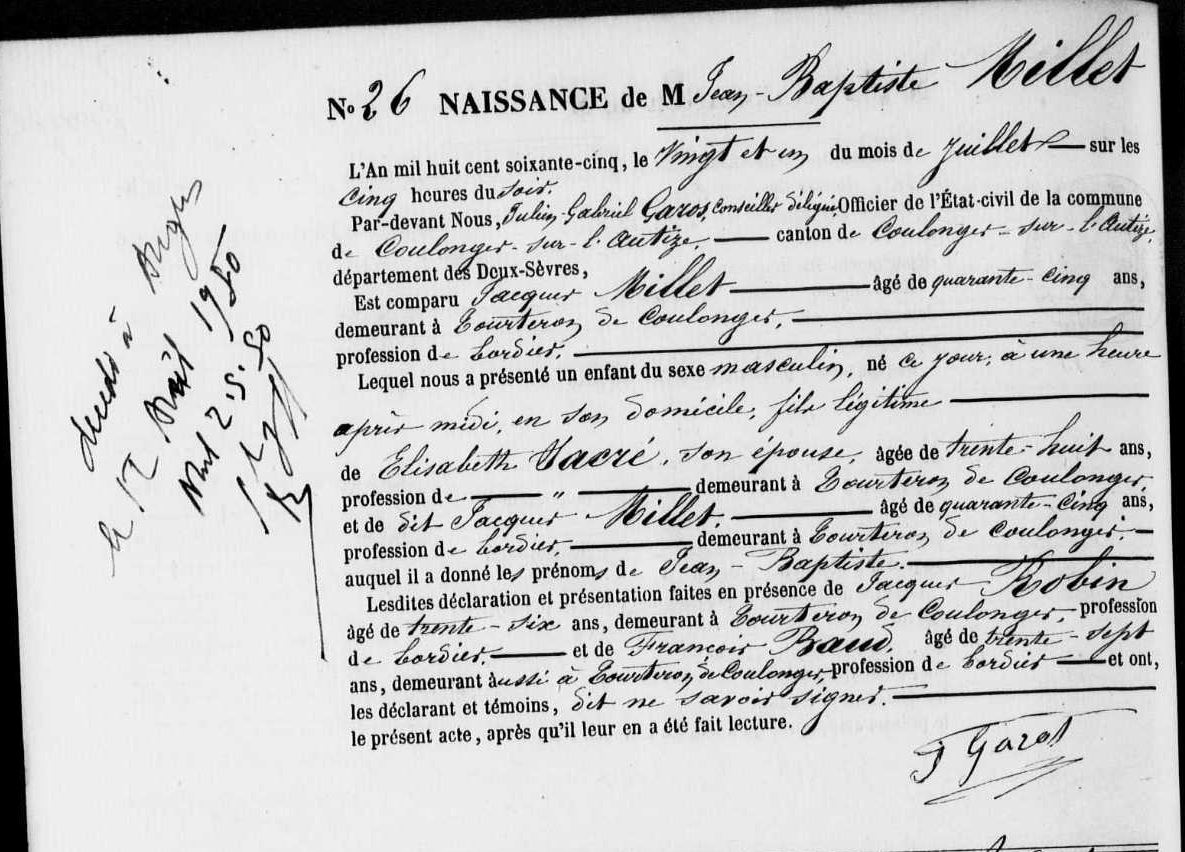 No 26 NAISSANCE de M Jean-Baptiste Millet
L'An mil huit cent soixante-cinq, le Vingt et un du mois de Juillet sur les
Cinq heures du soir.
Par-devant Nous, Julien-Gabriel Garos, Conseiller délégué Officier de l'État-civil de la commune
de Coulonges-sur-l'Autize, canton de Coulonges-sur-l'Autize,
département des Deux-Sèvres,
Est comparu Jacques Millet âgé de quarante-cinq ans,
demeurant à Tourteron de Coulonges,
profession de bordier,
Lequel nous a présenté un enfant du sexe masculin, né ce jour, à une heure
après midi, en son domicile, fils légitime
de Elisabeth Sacré, son épouse, âgée de trente-huit ans,
profession de " demeurant à Tourteron de Coulonges,
et de dit Jacques Millet, âgé de quarante-cinq ans,
profession de bordier, demeurant à Tourteron de Coulonges,
auquel il a donné les prénoms de Jean-Baptiste.
Lesdites déclaration et présentation faites en présence de Jacques Robin
âgé de trente-six ans, demeurant à Tourteron de Coulonges, profession
de bordier, et de François Baud, âgé de trente-sept
ans, demeurant aussi à Tourteron de Coulonges, profession de bordier et ont,
les déclarant et témoins, dit ne savoir signer.
le présent acte, après qu'il leur en a été fait lecture.
J Garos
à
le 12 1950
2.5.50